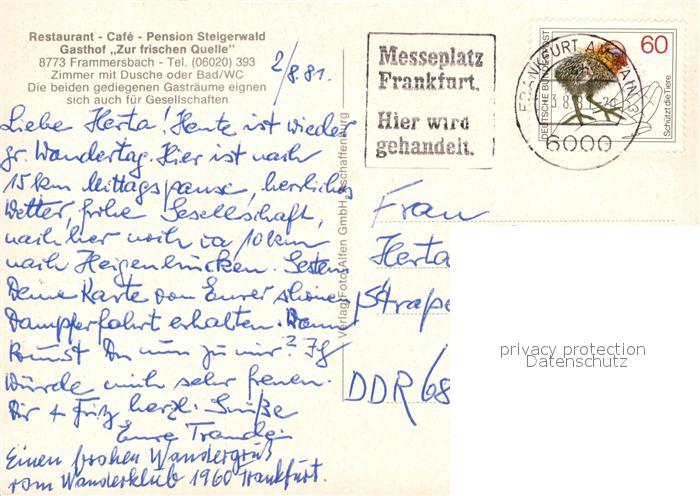 Restaurant - Café - Pension Steigerwald
Gasthof „Zur frischen Quelle"
8773 Frammersbach - Tel. (06020) 393
Zimmer mit Dusche oder Bad/WC
Die beiden gediegenen Gasträume eignen
sich auch für Gesellschaften
2/8.81.
Liebe Herta! Heute ist wieder
gr. Wandertag. Hier ist nach
15 km Mittagspause, herrliches
Wetter, frohe Gesellschaft,
nachher noch ca 10 km
nach Heigenbrücken. Gestern
Deine Karte von Eurer schönen
Dampferfahrt erhalten. Wann
kommst Du nun zu mir? Ich
würde mich sehr freuen.
Dir + Fritz herzl. Grüße
Eure
Einen frohen Wandergruß
vom Wanderklub 1960 Frankfurt.
Verlag Foto Alfen GmbH, Aschaffenburg
Messeplatz
Frankfurt.
Hier wird
gehandelt.
FRANKFURT AM MAIN 3
6000
DEUTSCHE BUNDESPOST
60
Schützt die Tiere
Frau
Herta
Straße
DDR 68
privacy protection
Datenschutz